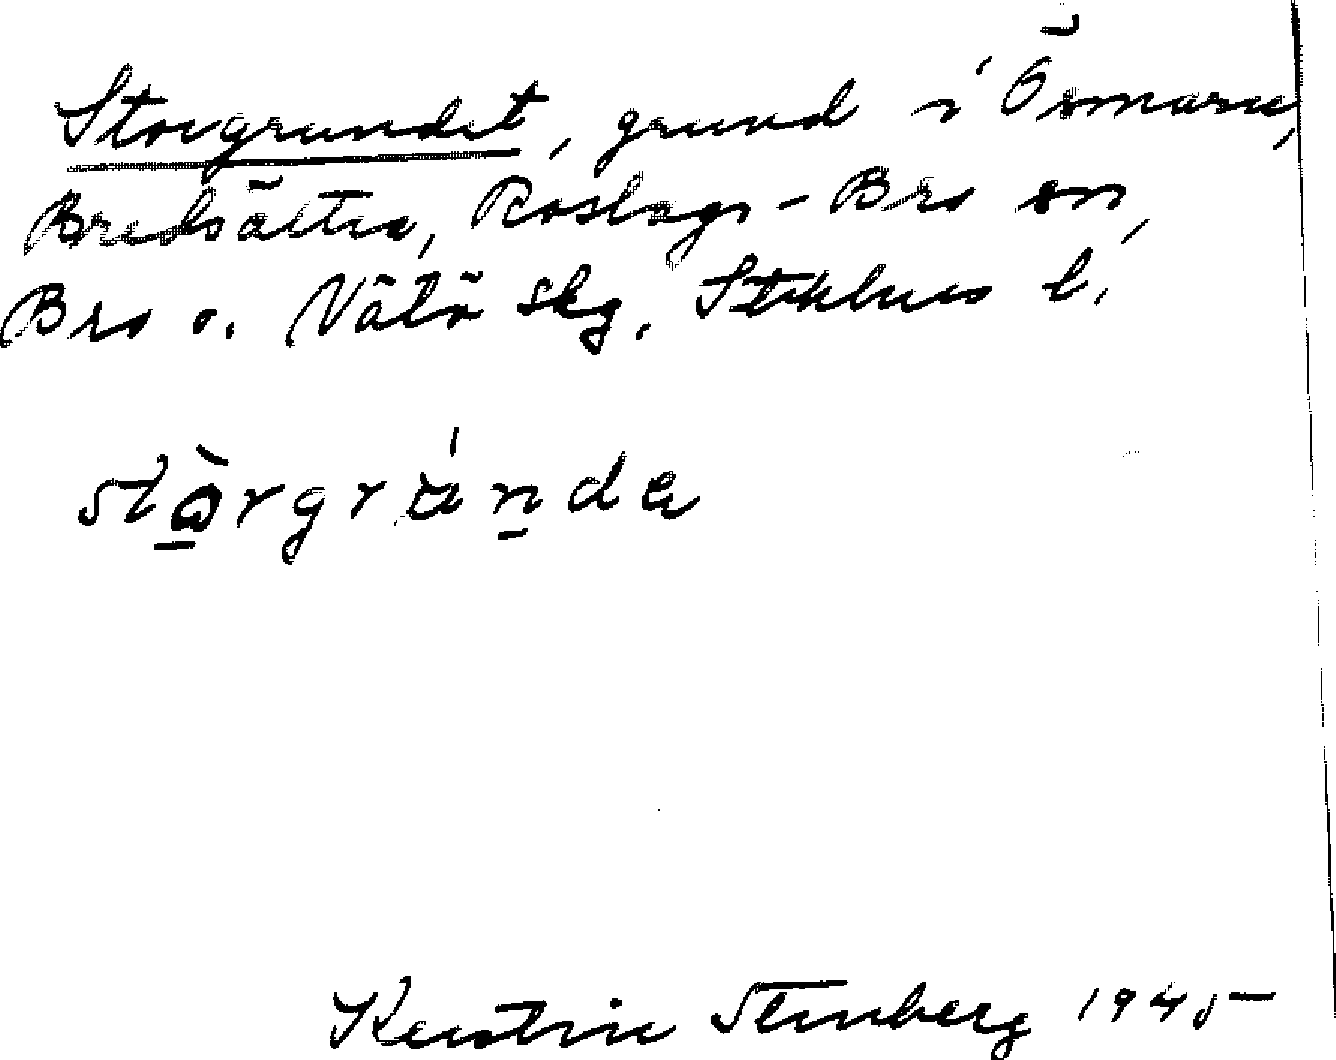 Storgrundet, grund i Ösmaren,
Bredsättra, Roslags-Bro sn,
Bro o. Vätö skg. Stockholms l.
stòrgrúnda
Kerstin Stenberg 1945